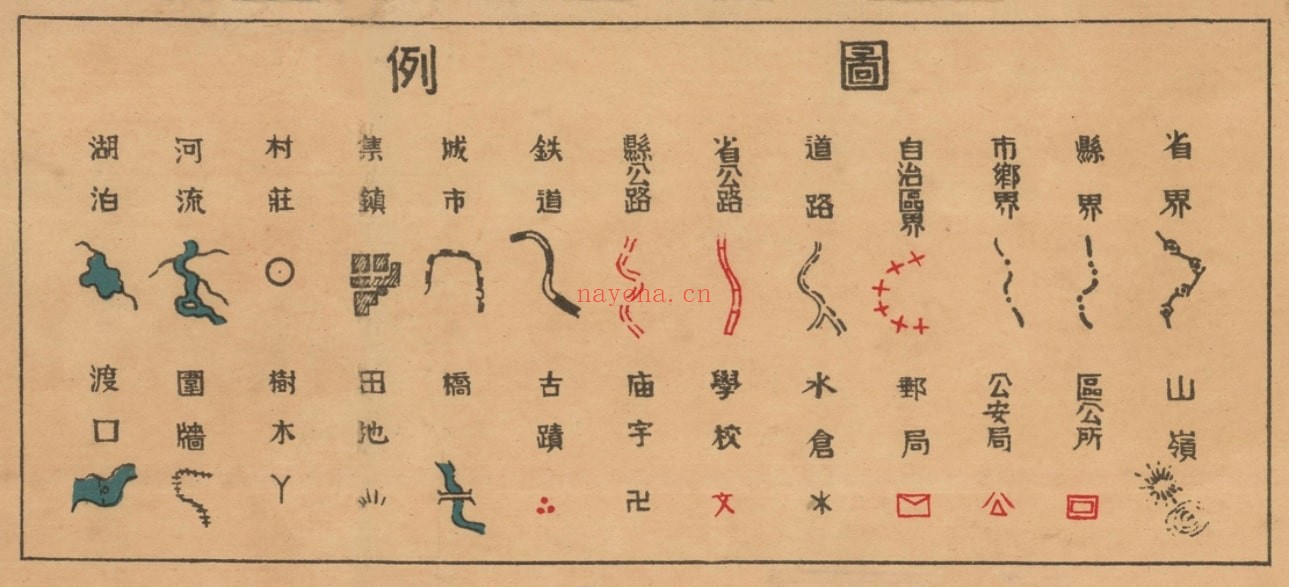 圖例
省界
縣界
市鄉界
自治區界
道路
省公路
縣公路
鉄道
城市
集鎮
村莊
河流
湖泊
山嶺
區公所
公安局
郵局
水倉
學校
庙宇
古蹟
橋
田池
樹木
圍牆
渡口
nayona.cn